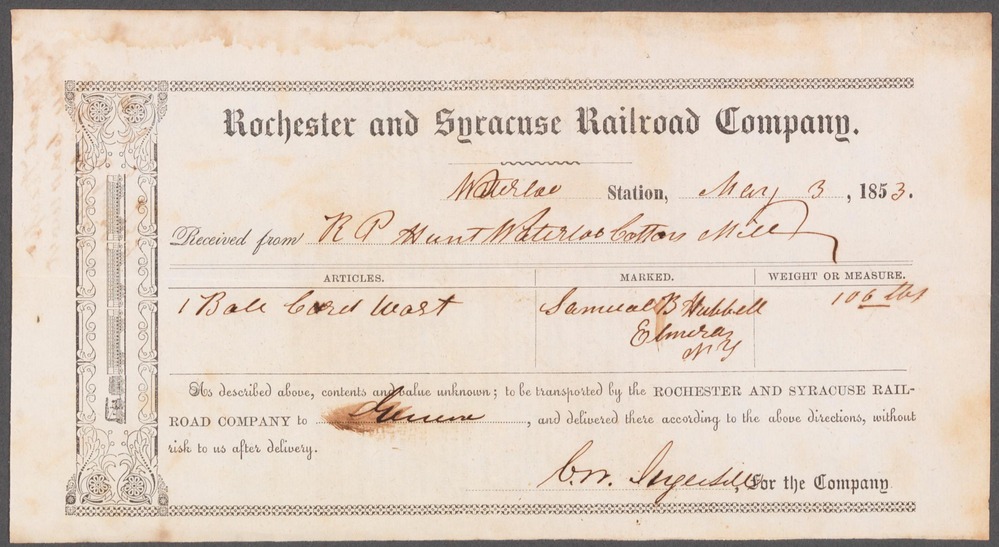 Rochester and Syracuse Railroad Company.
Waterloo Station, May 3, 1853.
Received from R P Hunt Waterloo Cotton Mill
ARTICLES. MARKED. WEIGHT OR MEASURE.
1 Bale Card Wast Samueal B Hubbell 106 lbs
Elmira
NY
As described above, contents and value unknown; to be transported by the ROCHESTER AND SYRACUSE RAIL-
ROAD COMPANY to Geneva, and delivered there according to the above directions, without
risk to us after delivery.
C. W. Ingersoll, For the Company